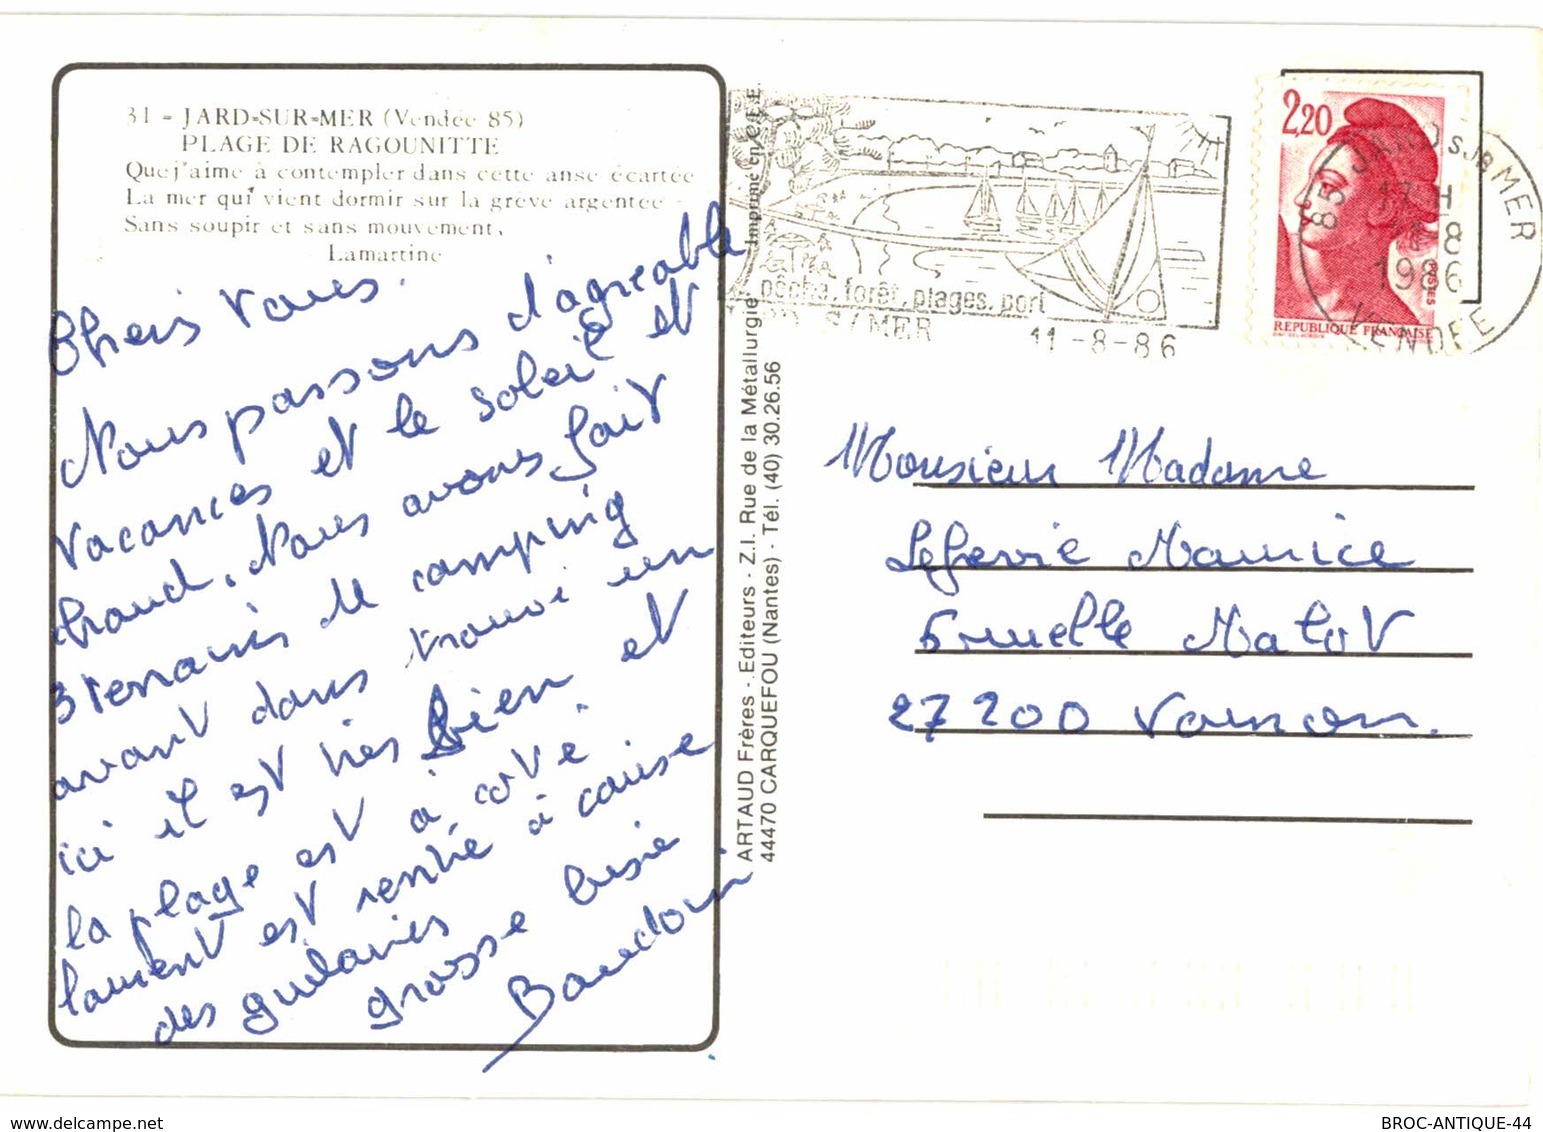 31 - JARD-SUR-MER (Vendée 85)
PLAGE DE RAGOUNITTE
Que j'aime à contempler dans cette anse écartée
La mer qui vient dormir sur la grève argentée -
Sans soupir et sans mouvement,
Lamartine
Chers vous.
Nous passons d'agreable
vacances et le soleil et
chaud. Nous avons fait
3 terrains de camping
avant dans trouvé un
ici il est très bien. et
la plage est à coté.
laurent est rentré à cause
des guitares
grosse bise
Baudouin
Imprimé en C.E.E.
ARTAUD Frères - Editeurs - Z.I. Rue de la Métallurgie
44470 CARQUEFOU (Nantes) - Tél. (40) 30.26.56
pêche, forêt, plages, port
S/MER 11-8-86
2,20
POSTES
REPUBLIQUE FRANÇAISE
85 JARD SUR MER
17 H
11-8
1986
VENDEE
Monsieur Madame
Lefevre Maurice
5 ruelle Malot
27200 Vernon.
BROC-ANTIQUE-44